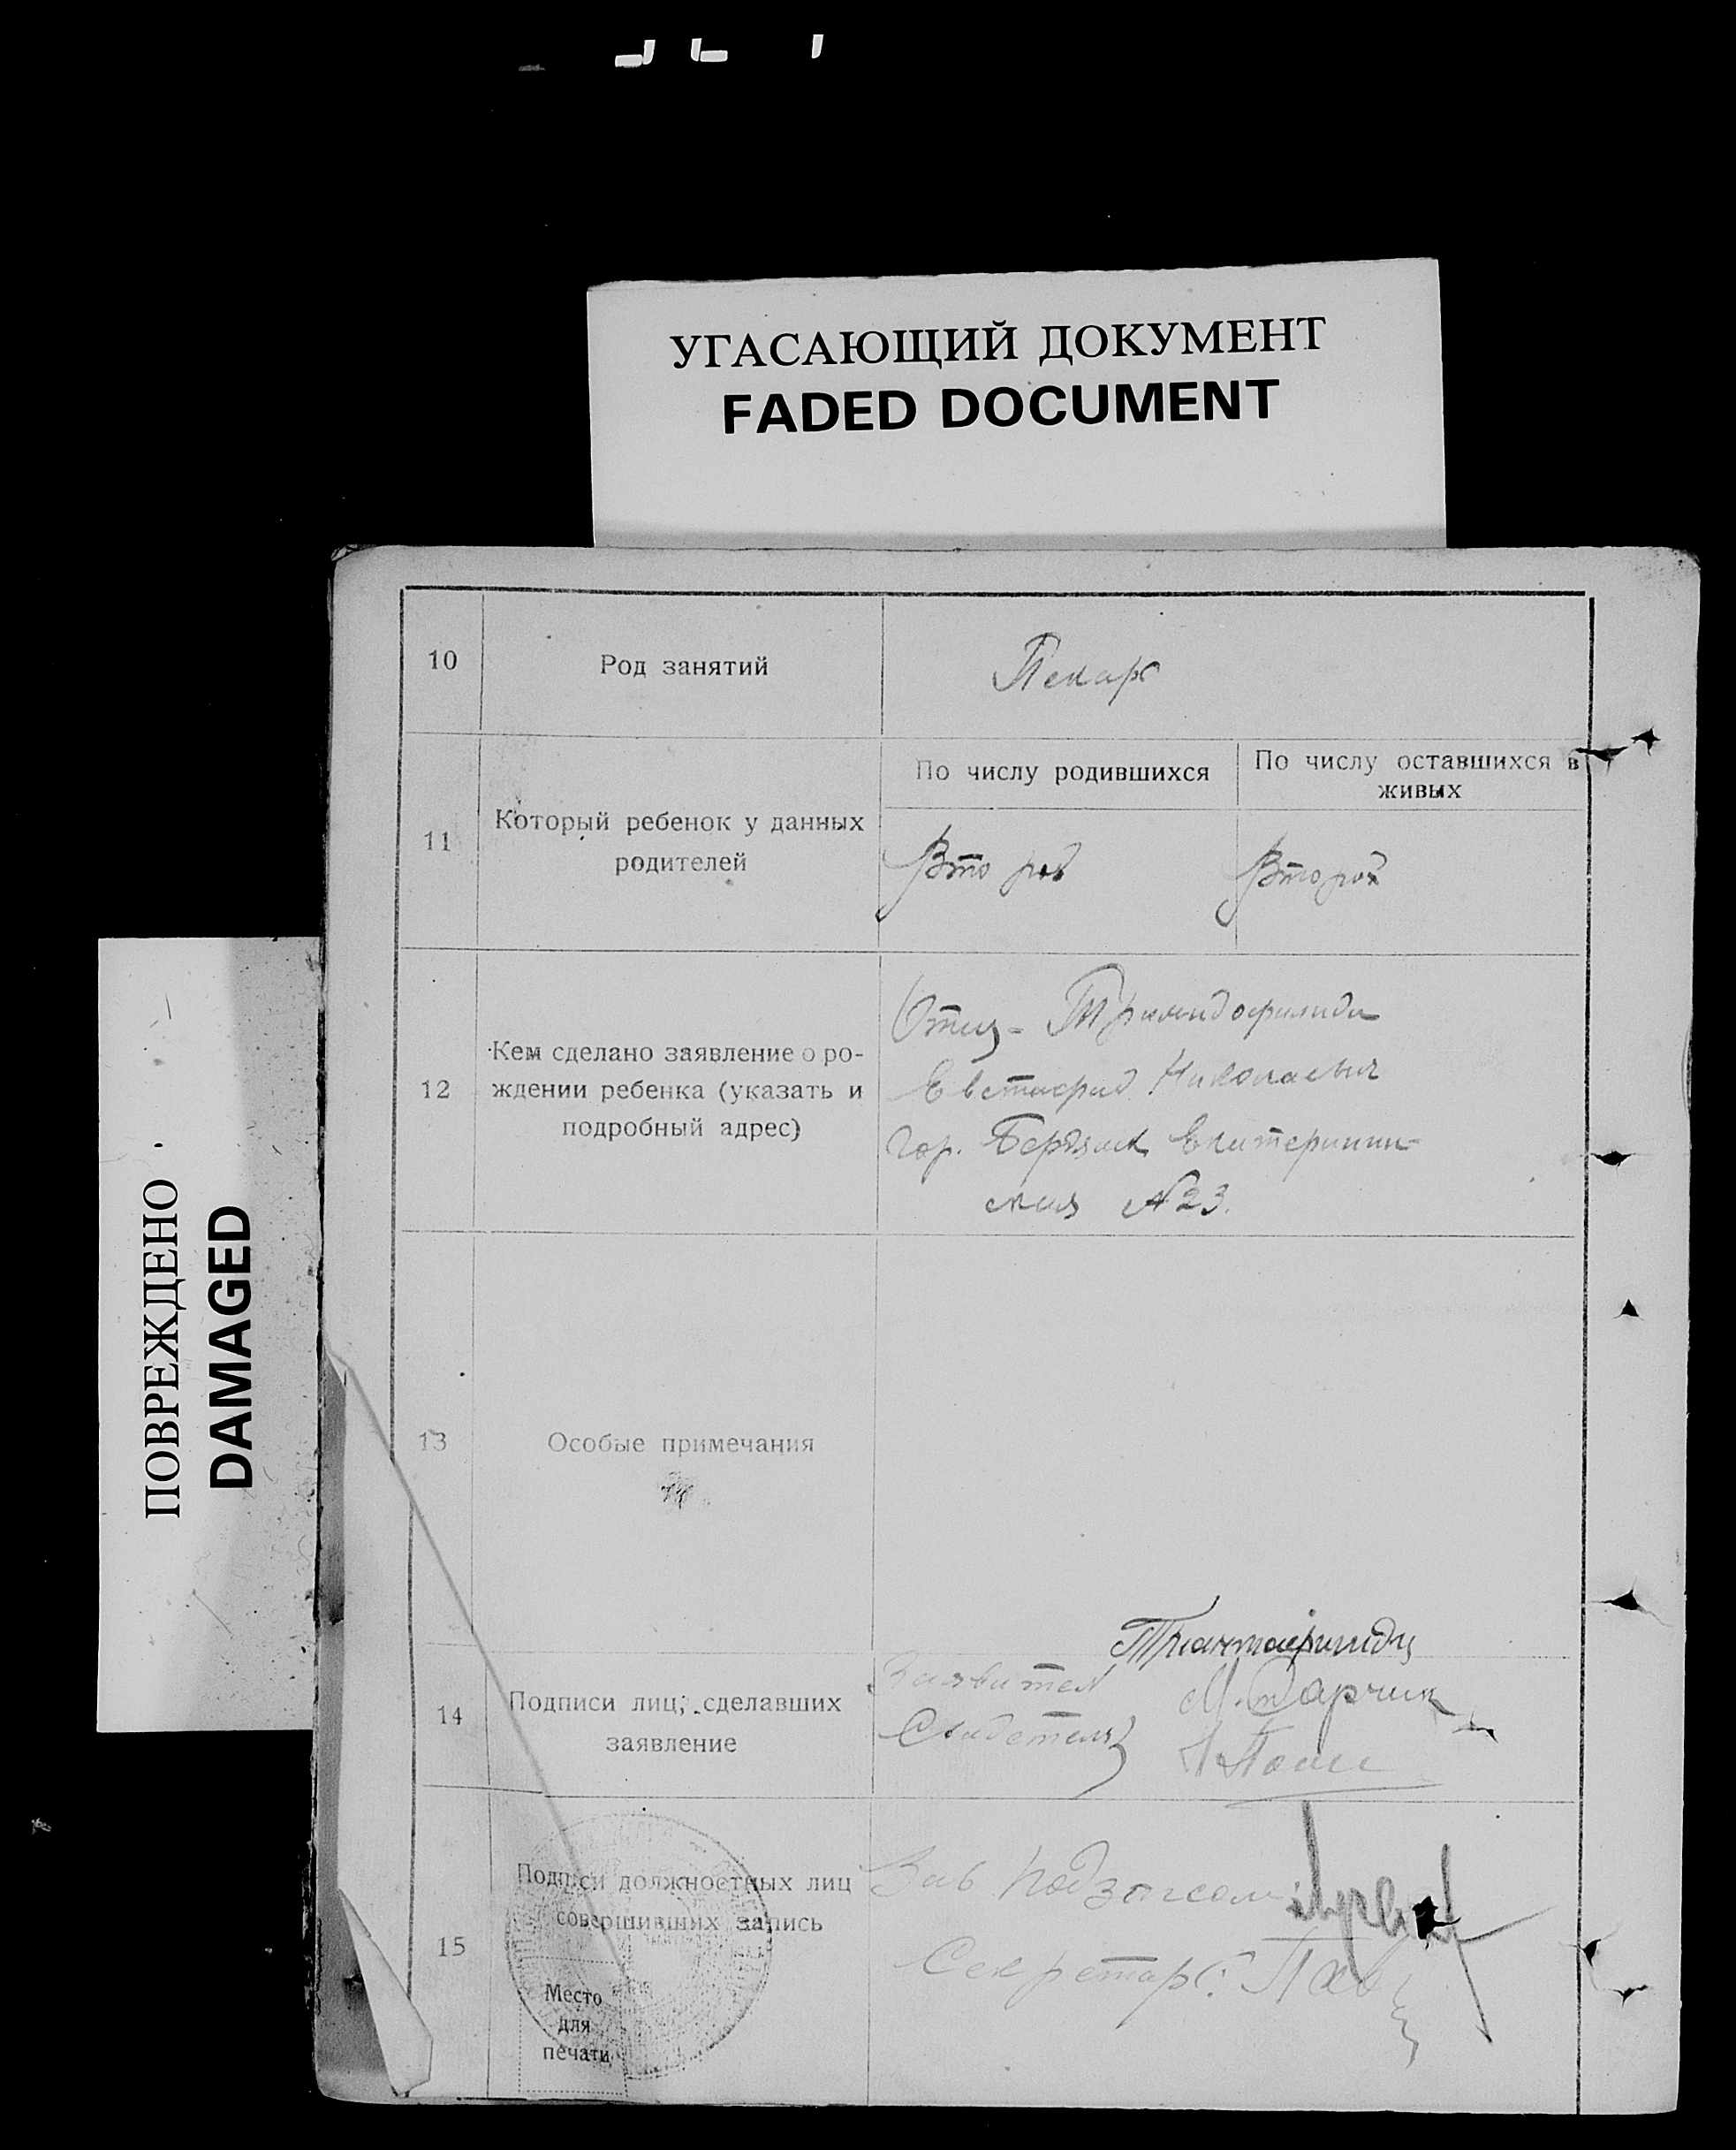 УГАСАЮЩИЙ ДОКУМЕНТ
FADED DOCUMENT
ПОВРЕЖДЕНО
DAMAGED
10
Род занятий
Пекарь
11
Который ребенок у данных
родителей
По числу родившихся
По числу оставшихся в
живых
Второй
Второй
12
Кем сделано заявление о ро-
ждении ребенка (указать и
подробный адрес)
Отец -
Евстафий Николаевич
Гор. Бердянск Екатеринин-
ская №23.
13
Особые примечания
14
Подписи лиц, сделавших
заявление
Свидетели
15
Подписи должностных лиц
совершивших запись
Место
для
печати
Зав
Секретарь: